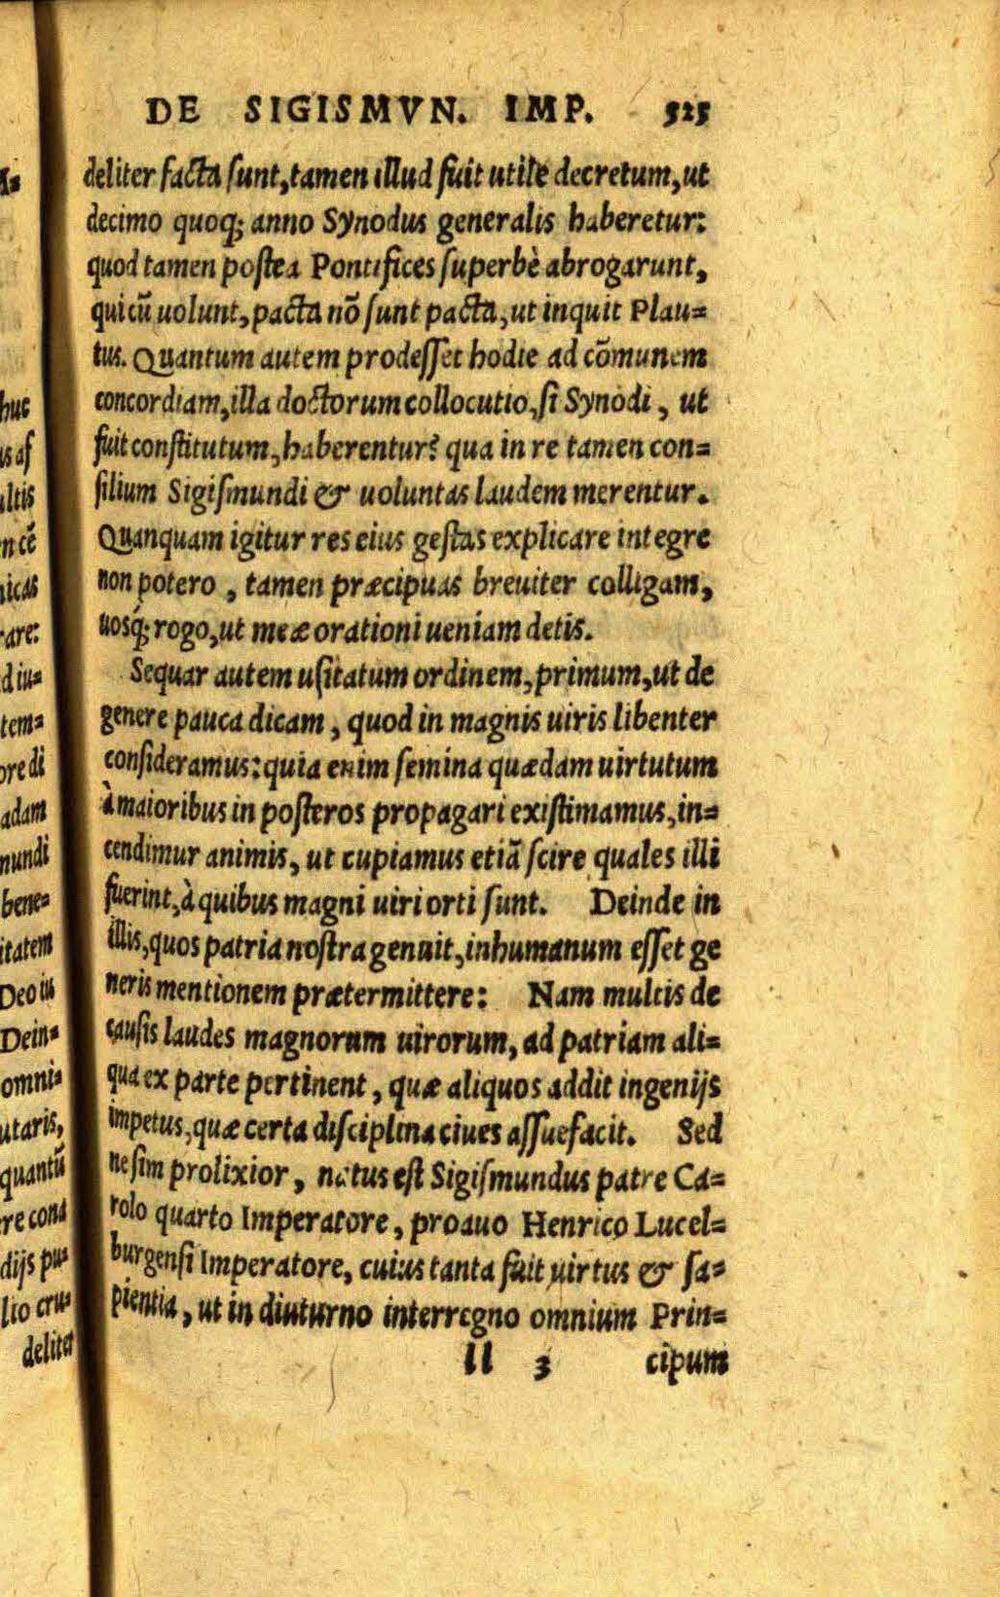 DE SIGISMVN. IMP. 525
deliter facta sunt, tamen illud fuit utile decretum, ut
decimo quoq; anno Synodus generalis haberetur:
quod tamen postea Pontifices superbè abrogarunt,
qui cū uolunt, pacta nō sunt pacta, ut inquit Plau=
tus. Quantum autem prodesset hodie ad cōmunem
concordiam, illa doctorum collocutio, si Synodi, ut
fuit constitutum, haberentur? qua in re tamen con=
silium Sigismundi & uoluntas laudem merentur.
Quanquam igitur res eius gestas explicare integre
non potero, tamen præcipuas breuiter colligam,
uosq́; rogo, ut meæ orationi ueniam detis.
Sequar autem usitatum ordinem, primum, ut de
genere pauca dicam, quod in magnis uiris libenter
consideramus: quia enim semina quædam uirtutum
à maioribus in posteros propagari existimamus, in=
cendimur animis, ut cupiamus etiā scire quales illi
fuerint, à quibus magni uiri orti sunt. Deinde in
illis, quos patria nostra genuit, inhumanum esset ge
neris mentionem prætermittere: Nam multis de
causis laudes magnorum uirorum, ad patriam ali=
qua ex parte pertinent, quæ aliquos addit ingenijs
impetus, quæ certa disciplina ciues assuefacit. Sed
ne sim prolixior, natus est Sigismundus patre Ca=
rolo quarto Imperatore, proauo Henrico Lucel=
burgensi Imperatore, cuius tanta fuit uirtus & sa=
pientia, ut in diuturno interregno omnium Prin=
ll 3 cipum
huc
is af
ultis
n cē
nicas
rare:
diu=
tem=
ore di
adam
nundi
bene=
itatem
Deo
Dein=
omni=
utaris,
quantū
re cona
dijs pu=
lio cru=
deliter